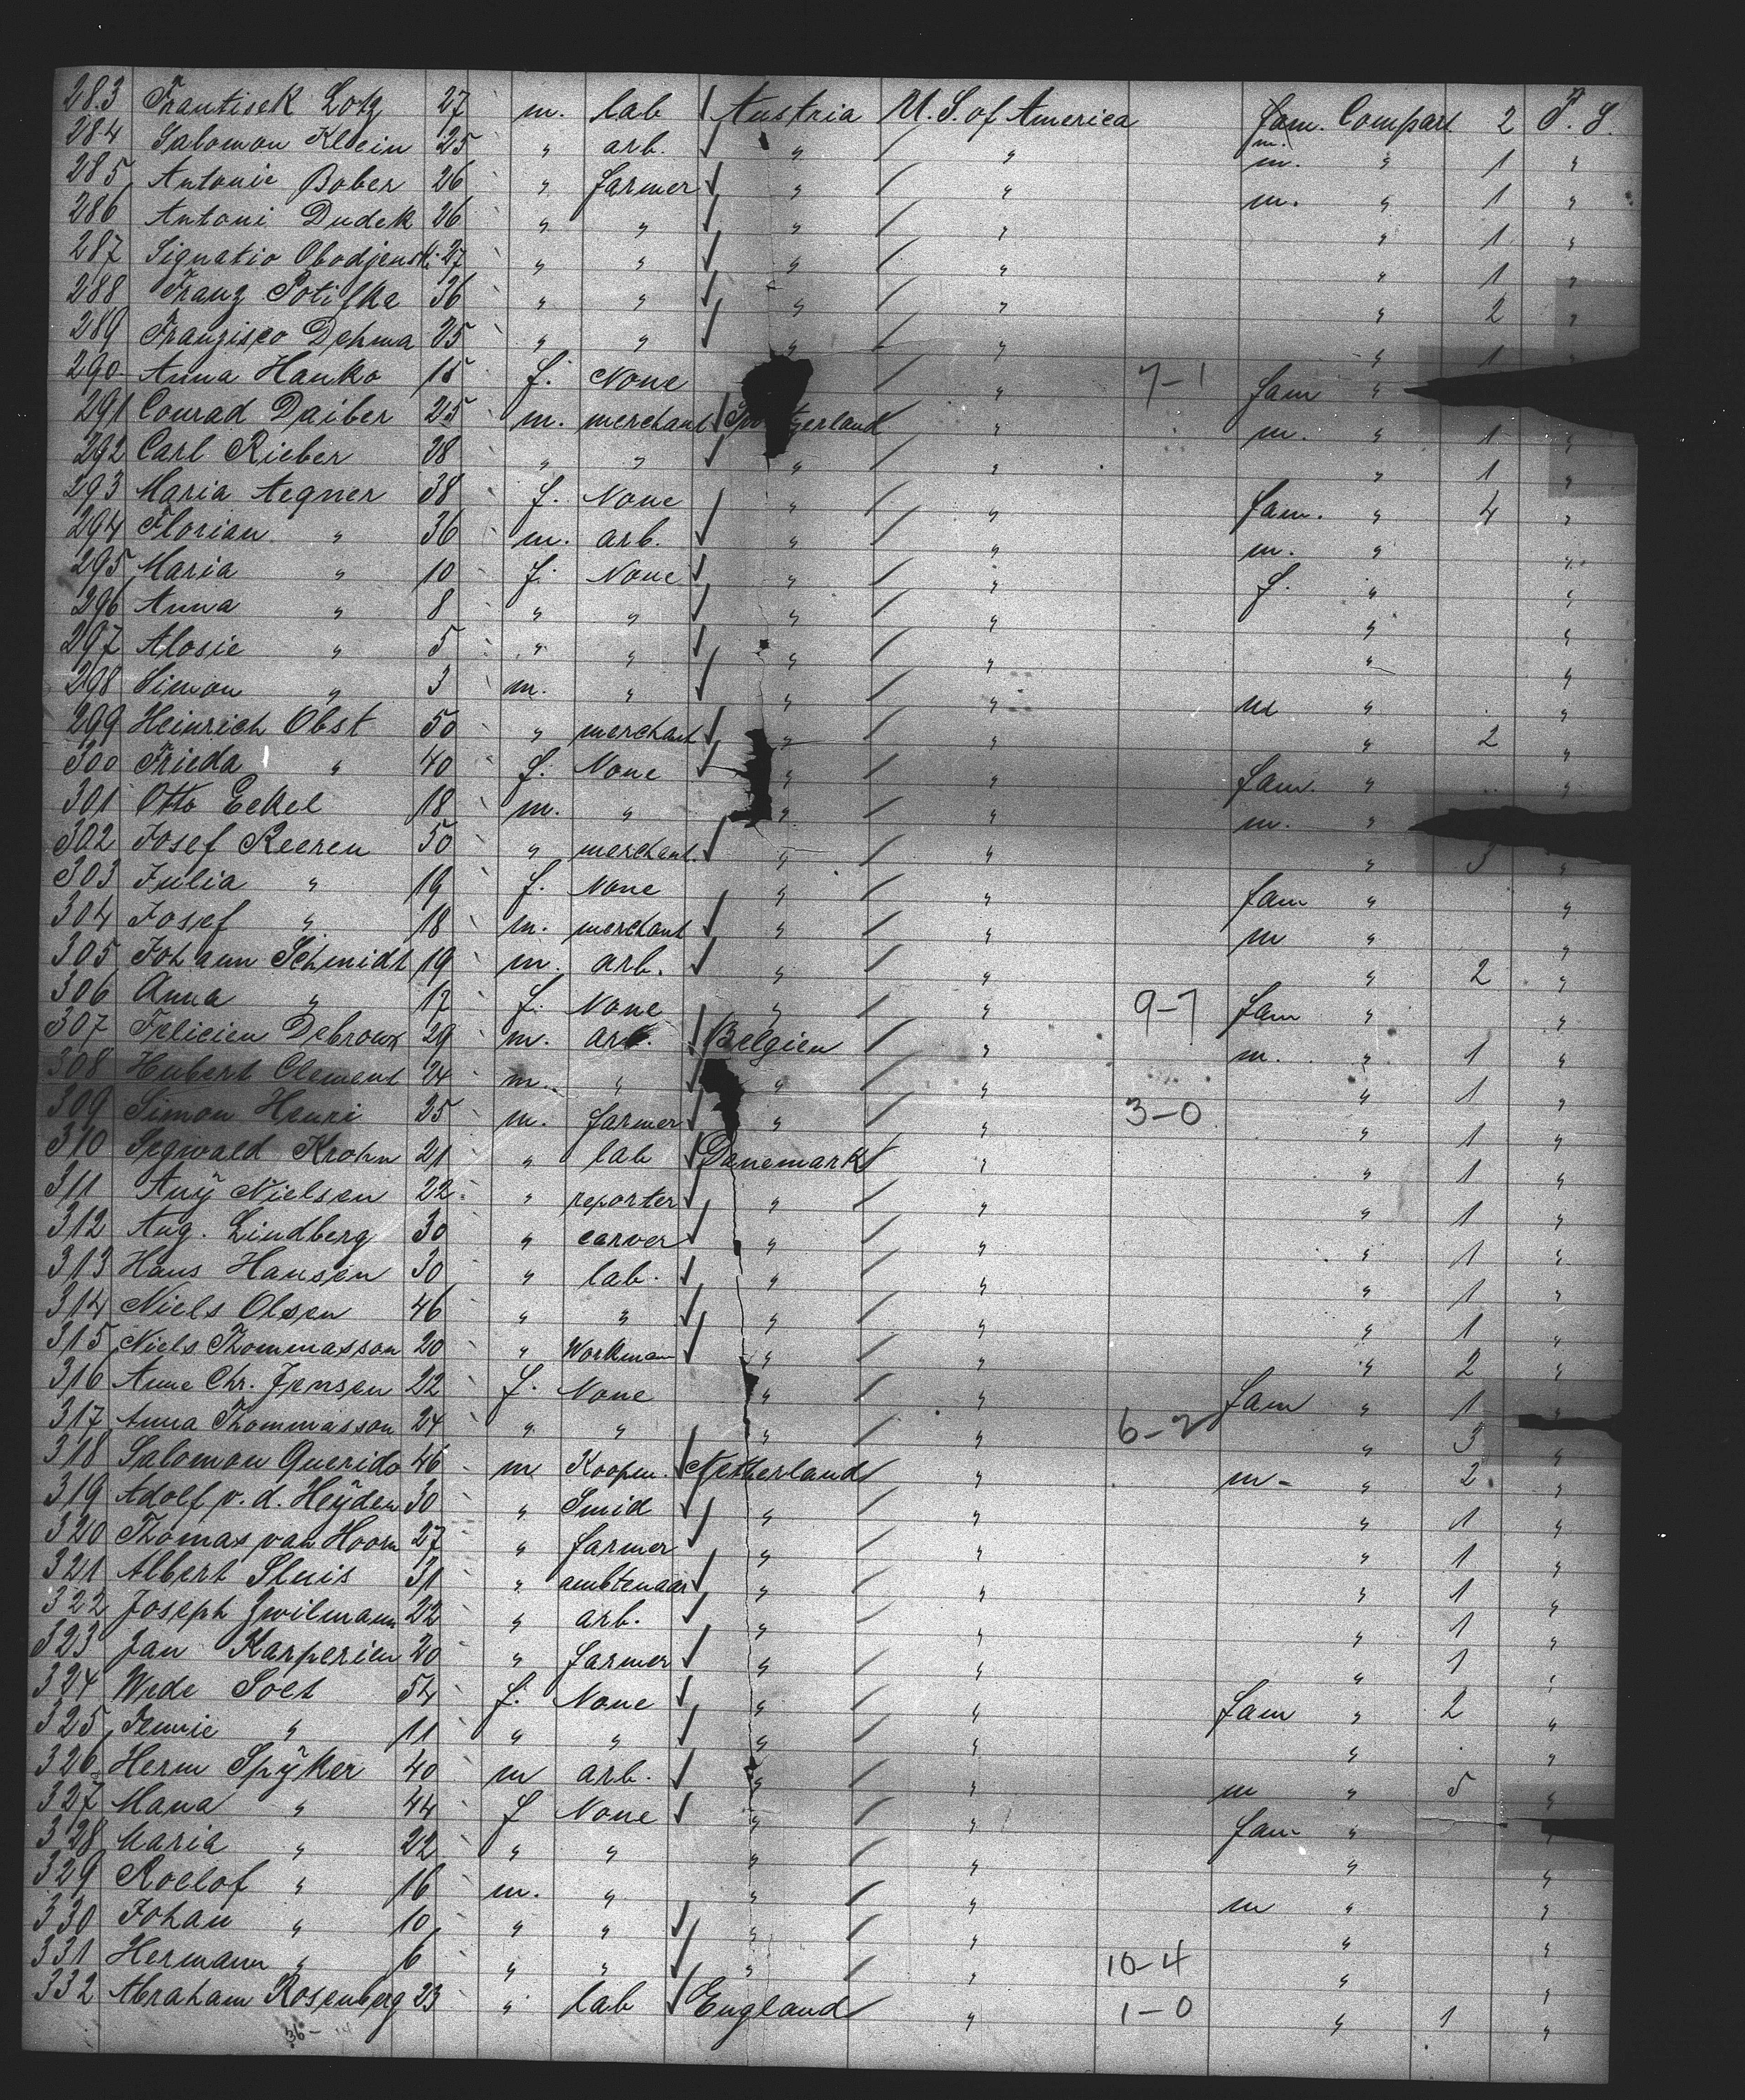 283 Frantisek Lotz 27 m. lab Austria U. S. of America fam. Compart. 2 F. S.
284 Salomon Klein 25 " arb. " " m. m. " 1 "
285 Antonie Bober 26 " farmer " " m. " 1 "
286 Antoni Dudek 26 " " " " " 1 "
287 Signatio 27 " " " " " 1 "
288 Franz 36 " " " " " 2 "
289 Franzisco Dehma 25 " " " " " 1
290 Anna Hanko 18 f. None " 7-1 fam "
291 Conrad Daiber 25 m. merchant " m. " 1 "
292 Carl Rieber 28 " " " " " 1 "
293 Maria Aegner 38 f. None " " fam. " 4 "
294 Florian " 36 m. arb. " " m. " "
295 Maria " 10 f. None " " f. " "
296 Anna " 8 " " " " " "
297 Alosie " 5 " " " " " "
298 Simon " 3 m. " " " m " "
299 Heinrich Obst 50 " merchant " " " 2 "
300 Frieda " 40 f. None " " fam. " "
301 Otto Eckel 18 m. " " " m. "
302 Josef Reeren 50 " merchant. " " " 3 "
303 Julia " 19 f. None " " fam " "
304 Josef " 18 m. merchant " " m " "
305 Johann Schmidt 19 m. arb. " " " 2 "
306 Anna " 17 f. None " " 9-7 fam " "
307 Felicien Debroux 29 m. arb. Belgien " m. " 1 "
308 Hubert Clement 24 m. " " " " 1 "
309 Simon Henri 25 m. farmer " " 3-0 " 1 "
310 Segwald Krohn 21 " lab Danemark " " 1 "
311 Auÿ Nielsen 22 " reporter " " " 1 "
312 Aug. Lindberg 30 " carver " " " 1 "
313 Hans Hansen 30 " lab. " " " 1 "
314 Niels Olsen 46 " " " " " 1 "
315 Niels Thommasson 20 " Workman " " " 2 "
316 Anne Chr. Jensen 22 f. None " " fam " 1 "
317 Anna Thommasson 24 " " " " 6-2 " 3 "
318 Salomon Querido 46 m Koopm. Netherland " m- " 2 "
319 Adolf v. d. Heÿden 30 " Smid " " " 1 "
320 Thomas van Hoorn 27 " farmer " " " 1 "
321 Albert Sluis 31 " ambtenaar " " " 1 "
322 Joseph Zwilmann 22 " arb. " " " 1 "
323 Jan Karperien 20 " farmer " " " 1 "
324 Wede Soet 54 f. None " " fam " 2 "
325 Jennie " 11 " " " " " "
326 Herm Spÿker 40 m arb. " " m " 5 "
327 Mana " 44 f None " " fam " "
328 Maria " 22 " " " " " "
329 Roelof " 16 m. " " " m " "
330 Johan " 10 " " " " " "
331 Hermann " 6 " " " " 10-4 " "
332 Abraham Rosenberg 23 " lab England " 1-0 " 1 "
36-